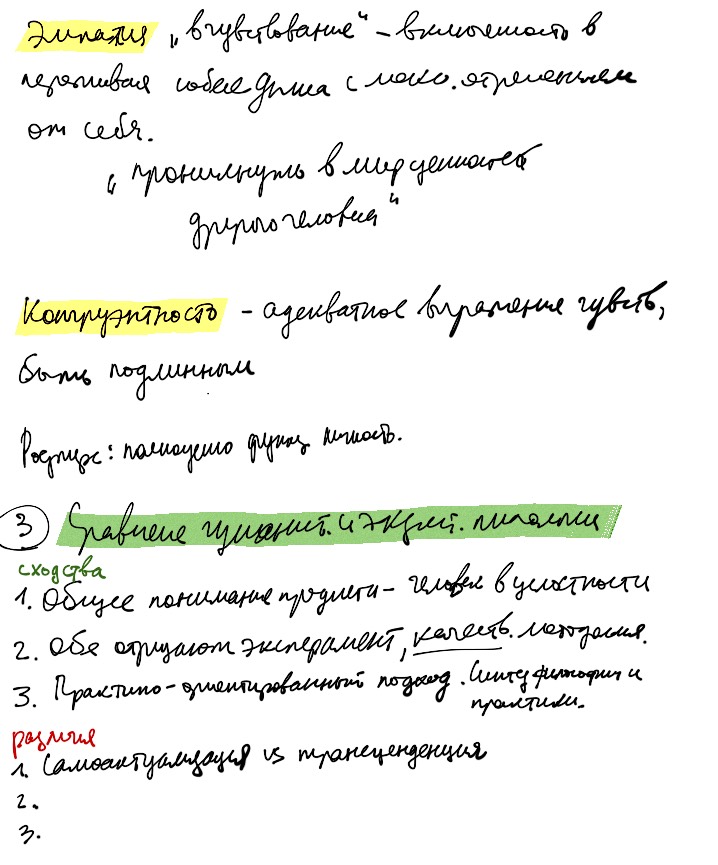 Эмпатия „вчувствование“ – включенность в
переживая собеседника с макс. отделением
от себя.
„проникнуть в мир ценностей
другого человека“
Конгруэнтность – адекватное выражение чувств,
быть подлинным
Роджерс: полноценно функц личность.
3 Сравнение гуманист. и экзист. психологии
сходства
1. Общее понимание предмета – человек в целостности
2. Обе отрицают эксперимент, качеств. методология.
3. Практико-ориентированный подход. Синтез философии и
практики.
различия
1. Самоактуализация vs трансценденция
2.
3.